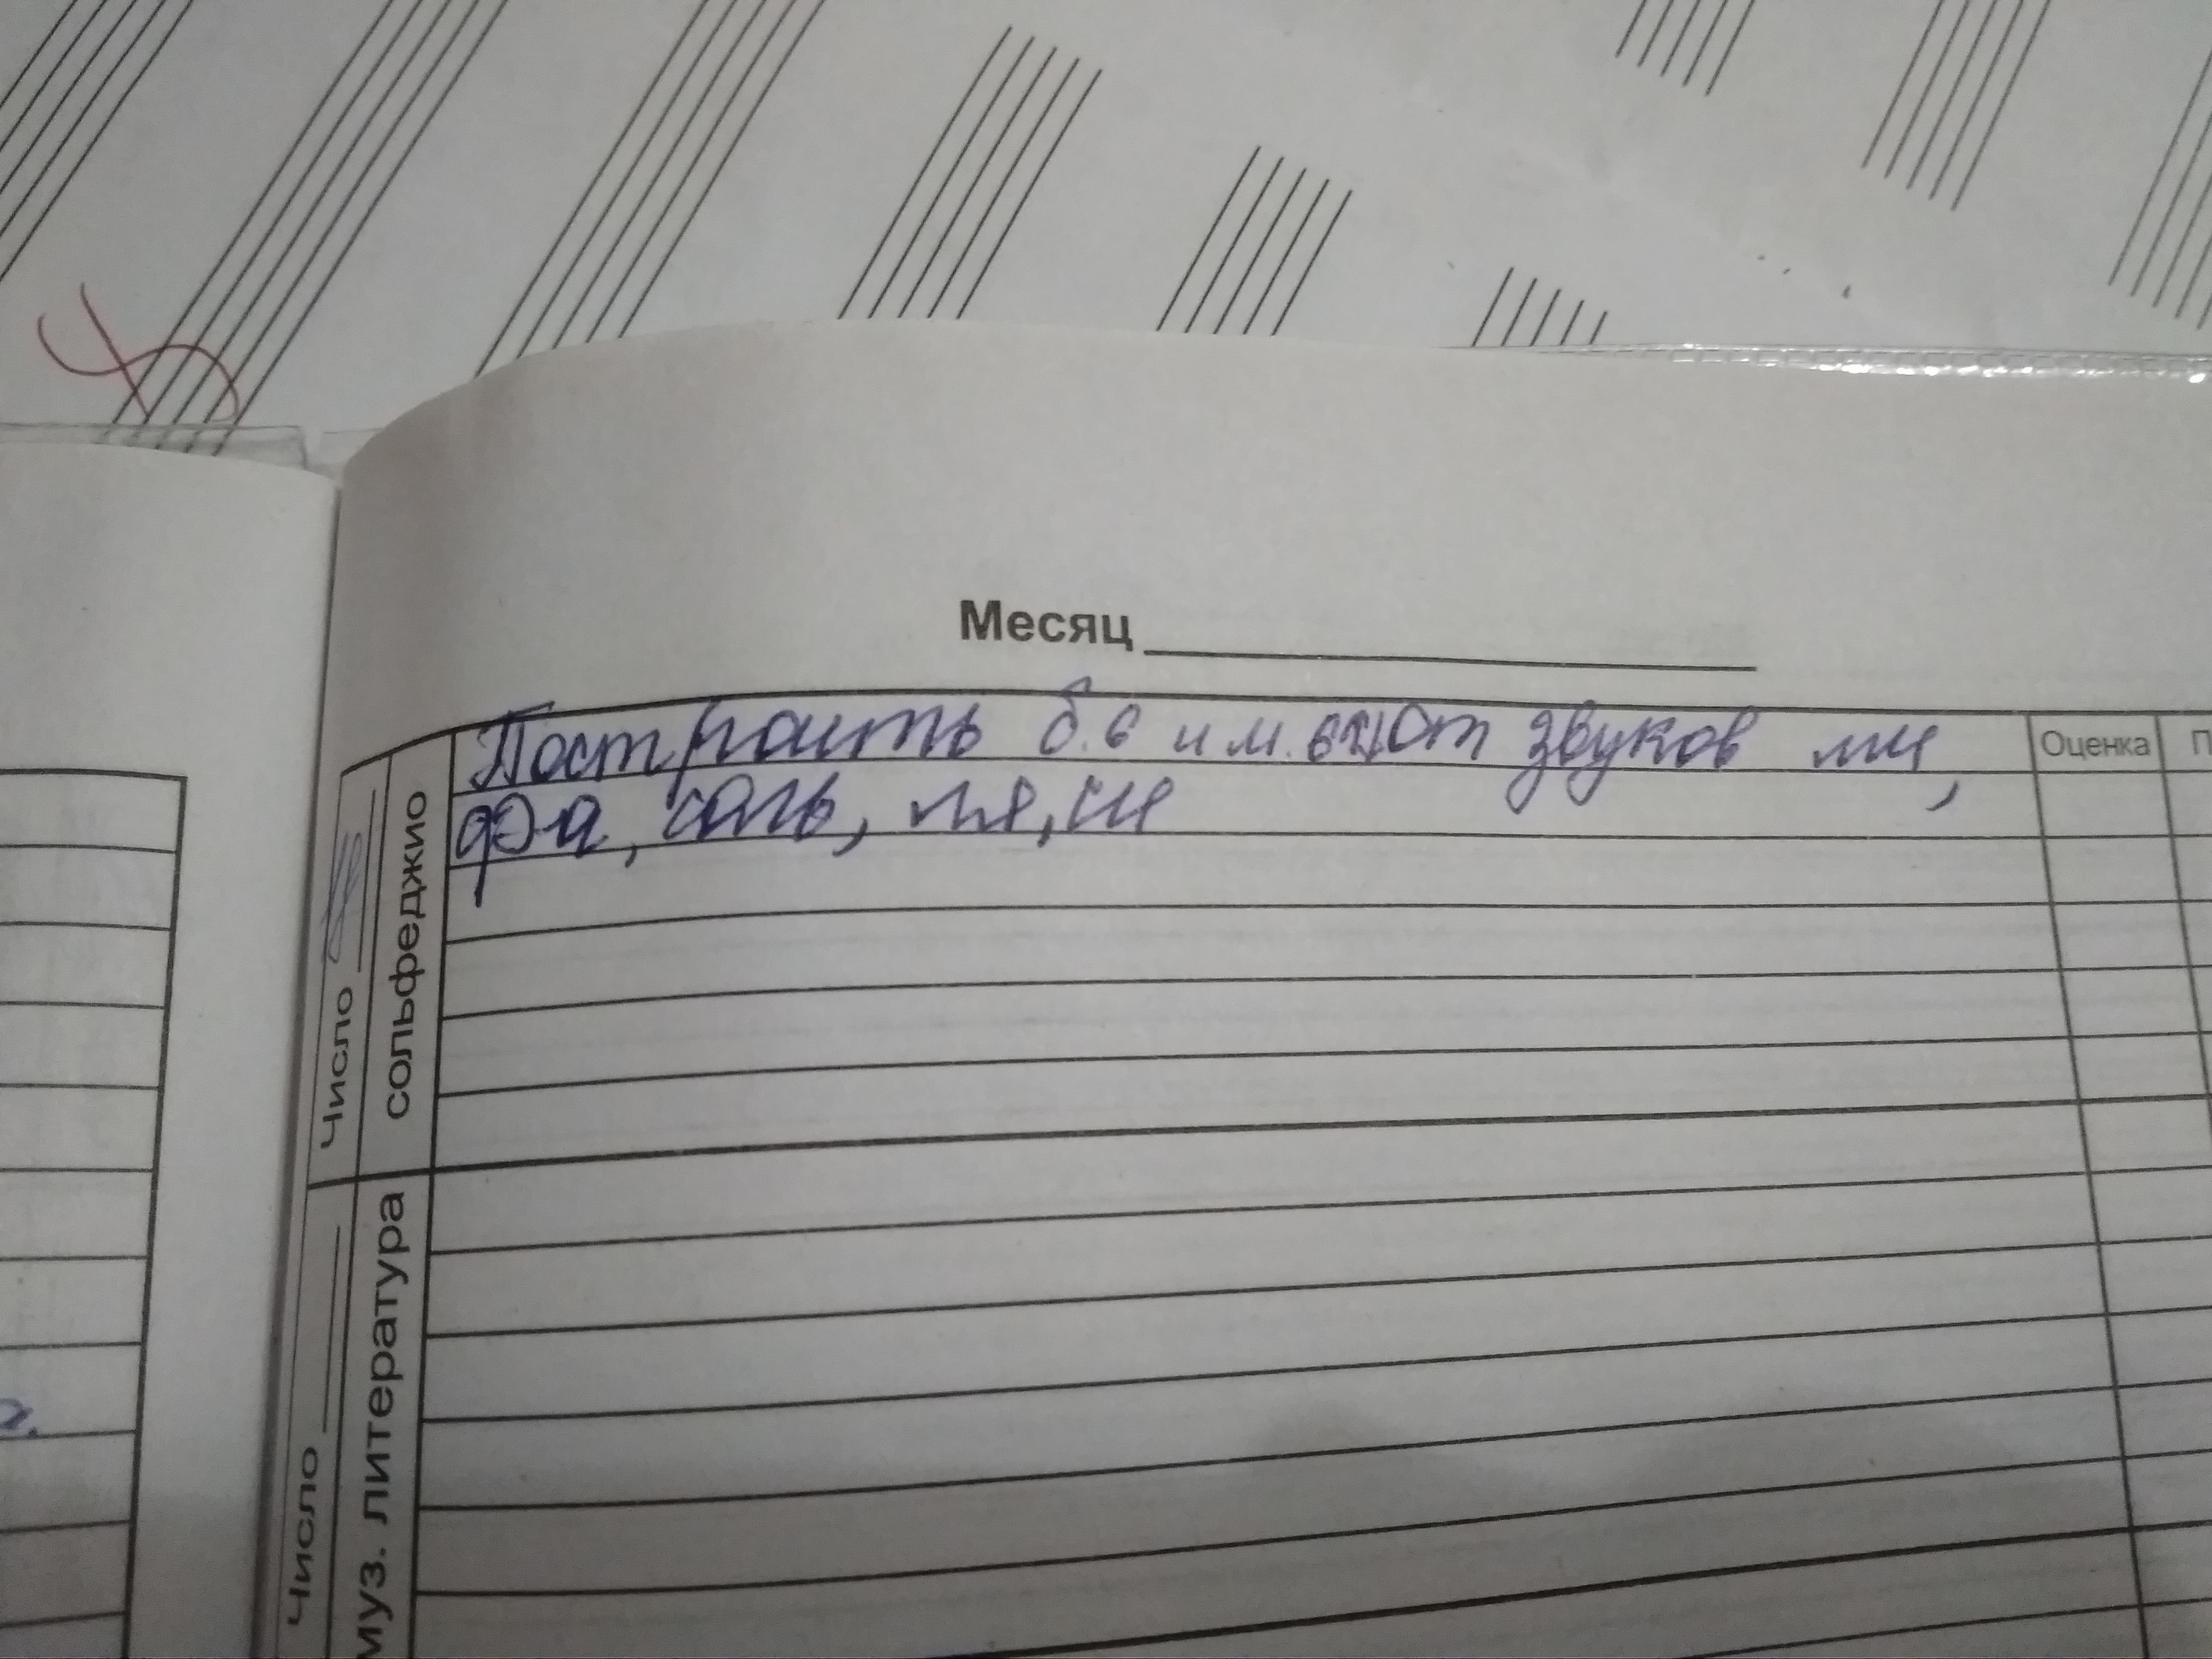 Месяц
Построить б.6 и м.6 от звуков ми,
фа, соль, ля, си
Оценка
П
Число
сольфеджио
Число
муз. литература